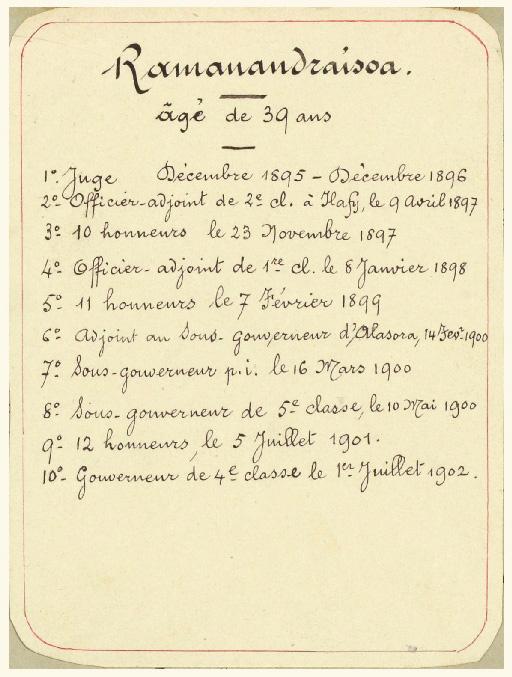 Ramanandraisoa.
âgé de 39 ans
1º. Juge Décembre 1895 - Décembre 1896
2º- Officier-adjoint de 2e cl. à Ilafy, le 9 Avril 1897
3º- 10 honneurs le 23 Novembre 1897
4º- Officier-adjoint de 1re cl. le 8 Janvier 1898
5º- 11 honneurs le 7 Février 1899
6º- Adjoint au Sous-gouverneur d'Alasora, 14 Fevr 1900
7º- Sous-gouverneur p.i. le 16 Mars 1900
8º- Sous-gouverneur de 5e classe, le 10 Mai 1900
9º- 12 honneurs, le 5 Juillet 1901.
10º- Gouverneur de 4e classe le 1er Juillet 1902.